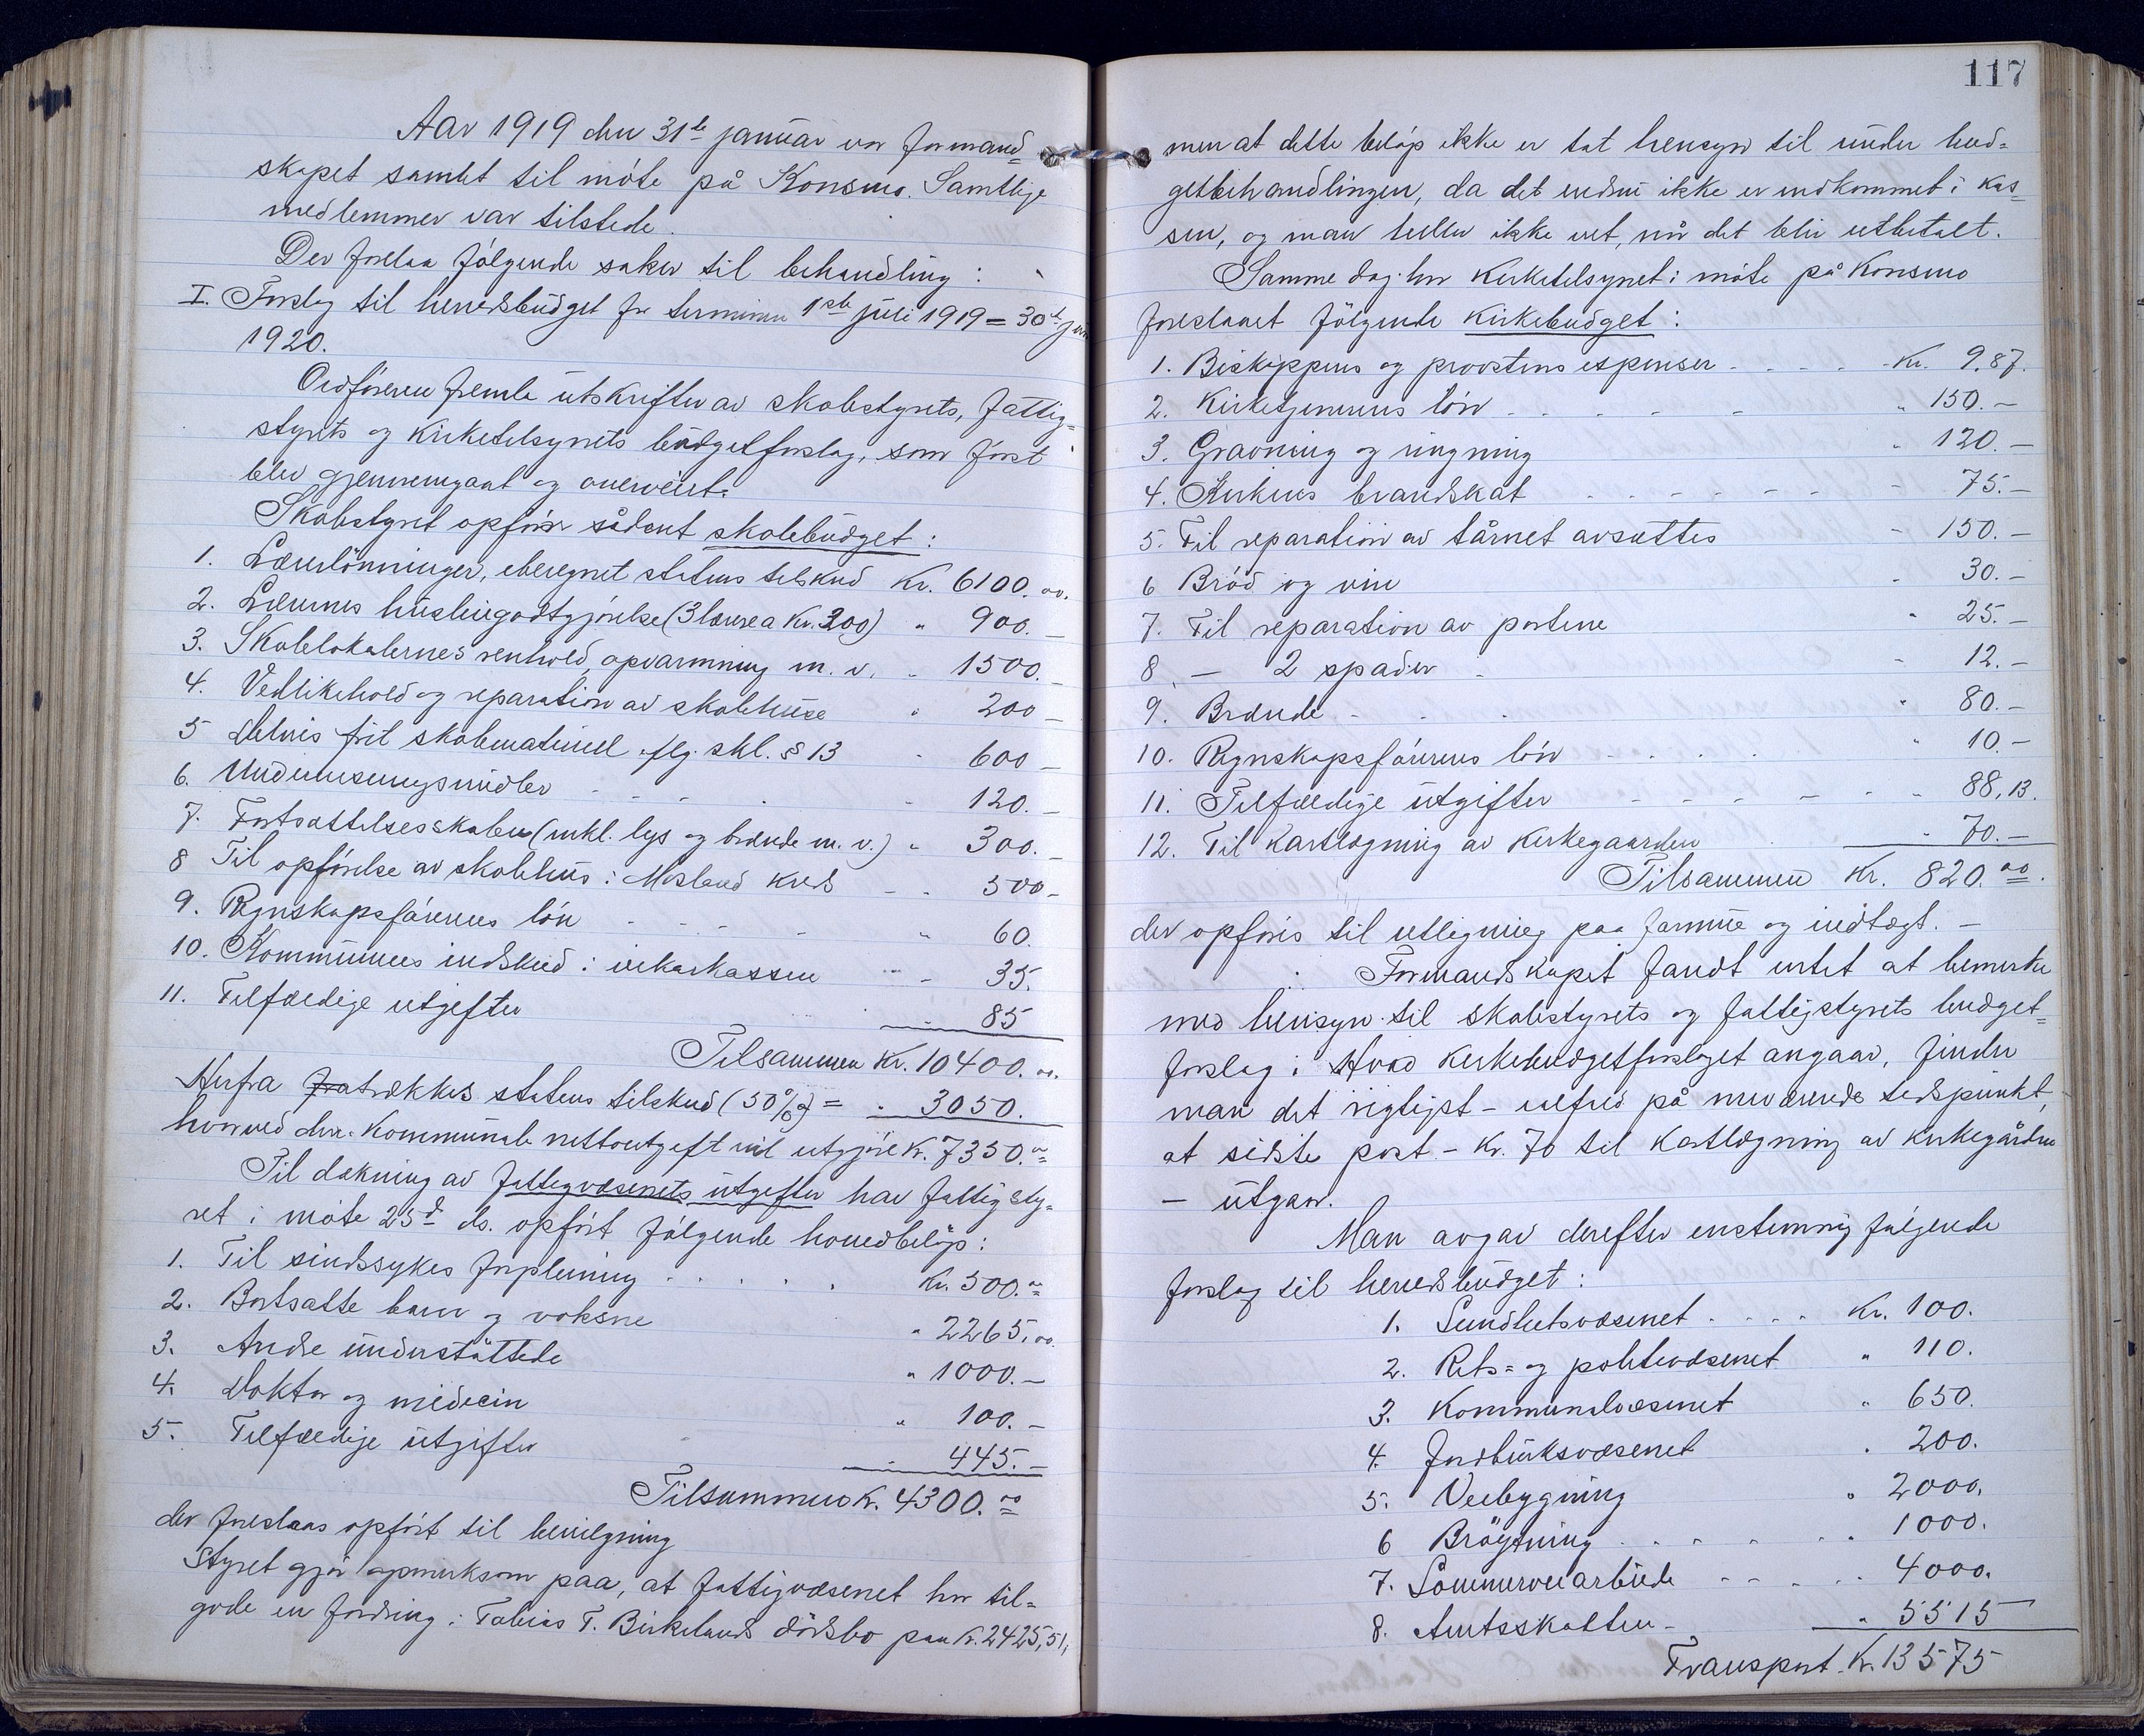 Aar 1919 den 31te januar var formand=
skapet samlet til møte på Konsmo. Samtlige
medlemmer var tilstede.
Der forelaa følgende saker til behandling:
I. Forslag til herredsbudget for terminen 1ste juli 1919 = 30te juni
1920.
Ordføreren fremla utskrifter av skolestyrets, fattig=
styrets og kirketilsynets budgetforslag, som først
blev gjennemgaat og overveiet.
Skolestyret opfører sådant skolebudget:
1. Lærerlønninger, uberegnet statens tilskud Kr. 6100.00.
2. Lærernes husleiegodtgjørelse (3 lærere a Kr. 300) " 900.—
3. Skolelokalernes renhold, opvarmning m. v. " 1500.—
4. Vedlikehold og reparation av skolehuse " 200 —
5 Delvis frit skolemateriell iflg. skl. § 13 " 600 —
6. Undervisningsmidler " 120.—
7. Fortsættelsesskolen (inkl. lys og brænde m. v.) " 300.—
8 Til opførelse av skolehus i Mesland kreds " 500 —
9. Regnskapsførerens løn " 60.
10. Kommunens indskud i vikarkassen " 35.
11. Tilfældige utgifter " 85
Tilsammen Kr. 10400.00.
Herfra fratrækkes statens tilskud (50%) = " 3050.
hvorved den kommunale nettoutgift vil utgjøre Kr. 7350.00
Til dækning av fattigvæsenets utgifter har fattigsty=
ret i møte 25de ds. opført følgende hovedbeløp:
1. Til sindssykes forpleining Kr. 500.00
2. Bortsatte barn og voksne " 2265,00.
3. Andre understøttede " 1000.—
4. Doktor og medicin " 100.—
5. Tilfældige utgifter " 445.—
Tilsammen Kr. 4300.00
der foreslaas opført til bevilgning
Styret gjør opmerksom paa, at fattigvæsenet har til=
gode en fordring i Tobias T. Birkelands dødsbo paa Kr. 2425,51,
117
men at dette beløp ikke er tat hensyn til under bud=
getbehandlingen, da det endnu ikke er indkommet i kas=
sen, og man heller ikke vet, når det blir utbetalt.
Samme dag har Kirketilsynet i møte på Konsmo
foreslaaet følgende kirkebudget:
1. Biskoppens og provstens expenser Kr. 9,87.
2. Kirketjenerens løn " 150.—
3. Gravning og ringning " 120.—
4. Kirkens brandskat " 75.—
5. Til reparation av tårnet avsættes " 150.—
6 Brød og vin " 30.—
7. Til reparation av portene " 25.—
8. — 2 spader " 12.—
9. Brænde " 80.—
10. Regnskapsførerens løn " 10.—
11. Tilfældige utgifter " 88,13.
12. Til kartlægning av kirkegaarden " 70.—
Tilsammen Kr. 820.00.
der opføres til utligning paa formue og indtægt. —
Formandskapet fandt intet at bemerke
med hensyn til skolestyrets og fattigstyrets budget=
forslag. Hvad kirkebudgetforslaget angaar, finder
man det rigtigst — ialfald på nuværende tidspunkt,
at sidste post — Kr. 70 til kartlægning av kirkegården
— utgaar.
Man avgav derefter enstemmig følgende
forslag til herredsbudget:
1. Sundhetsvæsenet Kr. 100.
2. Rets= og politivæsenet " 110.
3. Kommunalvæsenet " 650.
4. Jordbruksvæsenet " 200.
5. Veibygning " 2000.
6 Brøytning " 1000.
7. Sommerveiarbeide " 4000.
8. Amtsskatten " 5515
Transport Kr. 13575